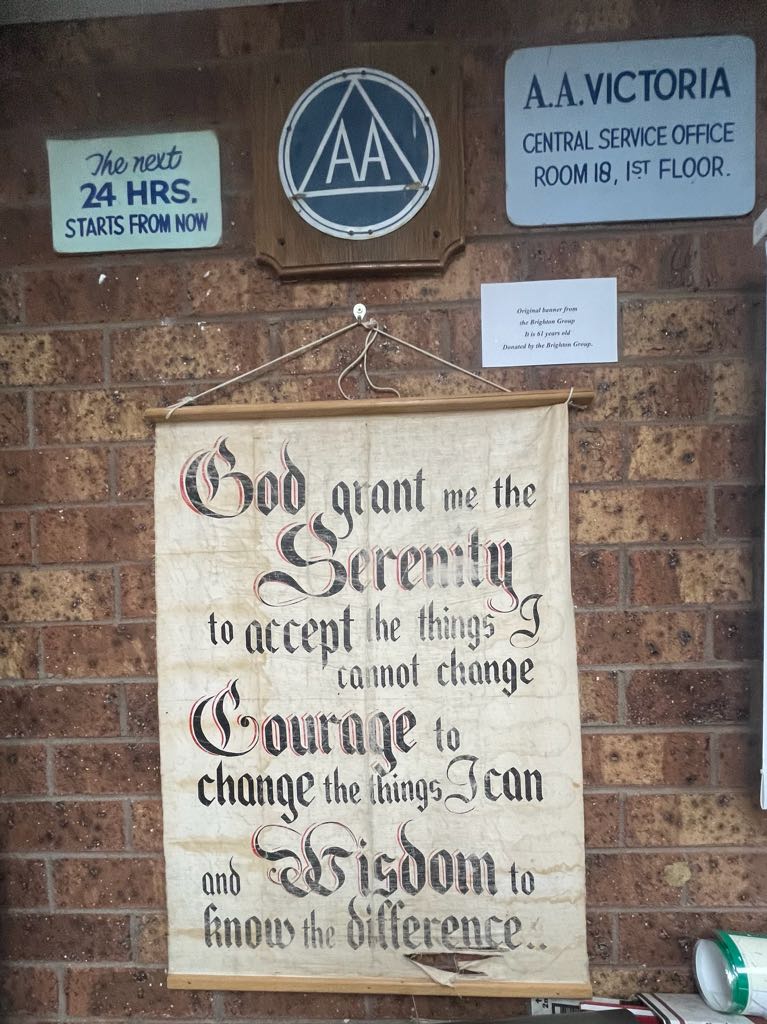 The next
24 HRS.
STARTS FROM NOW
AA
A.A. VICTORIA
CENTRAL SERVICE OFFICE
ROOM 18, 1ST FLOOR.
Original banner from
the Brighton Group
It is 61 years old
Donated by the Brighton Group.
God grant me the
Serenity
to accept the things I
cannot change
Courage to
change the things I can
and Wisdom to
know the difference..